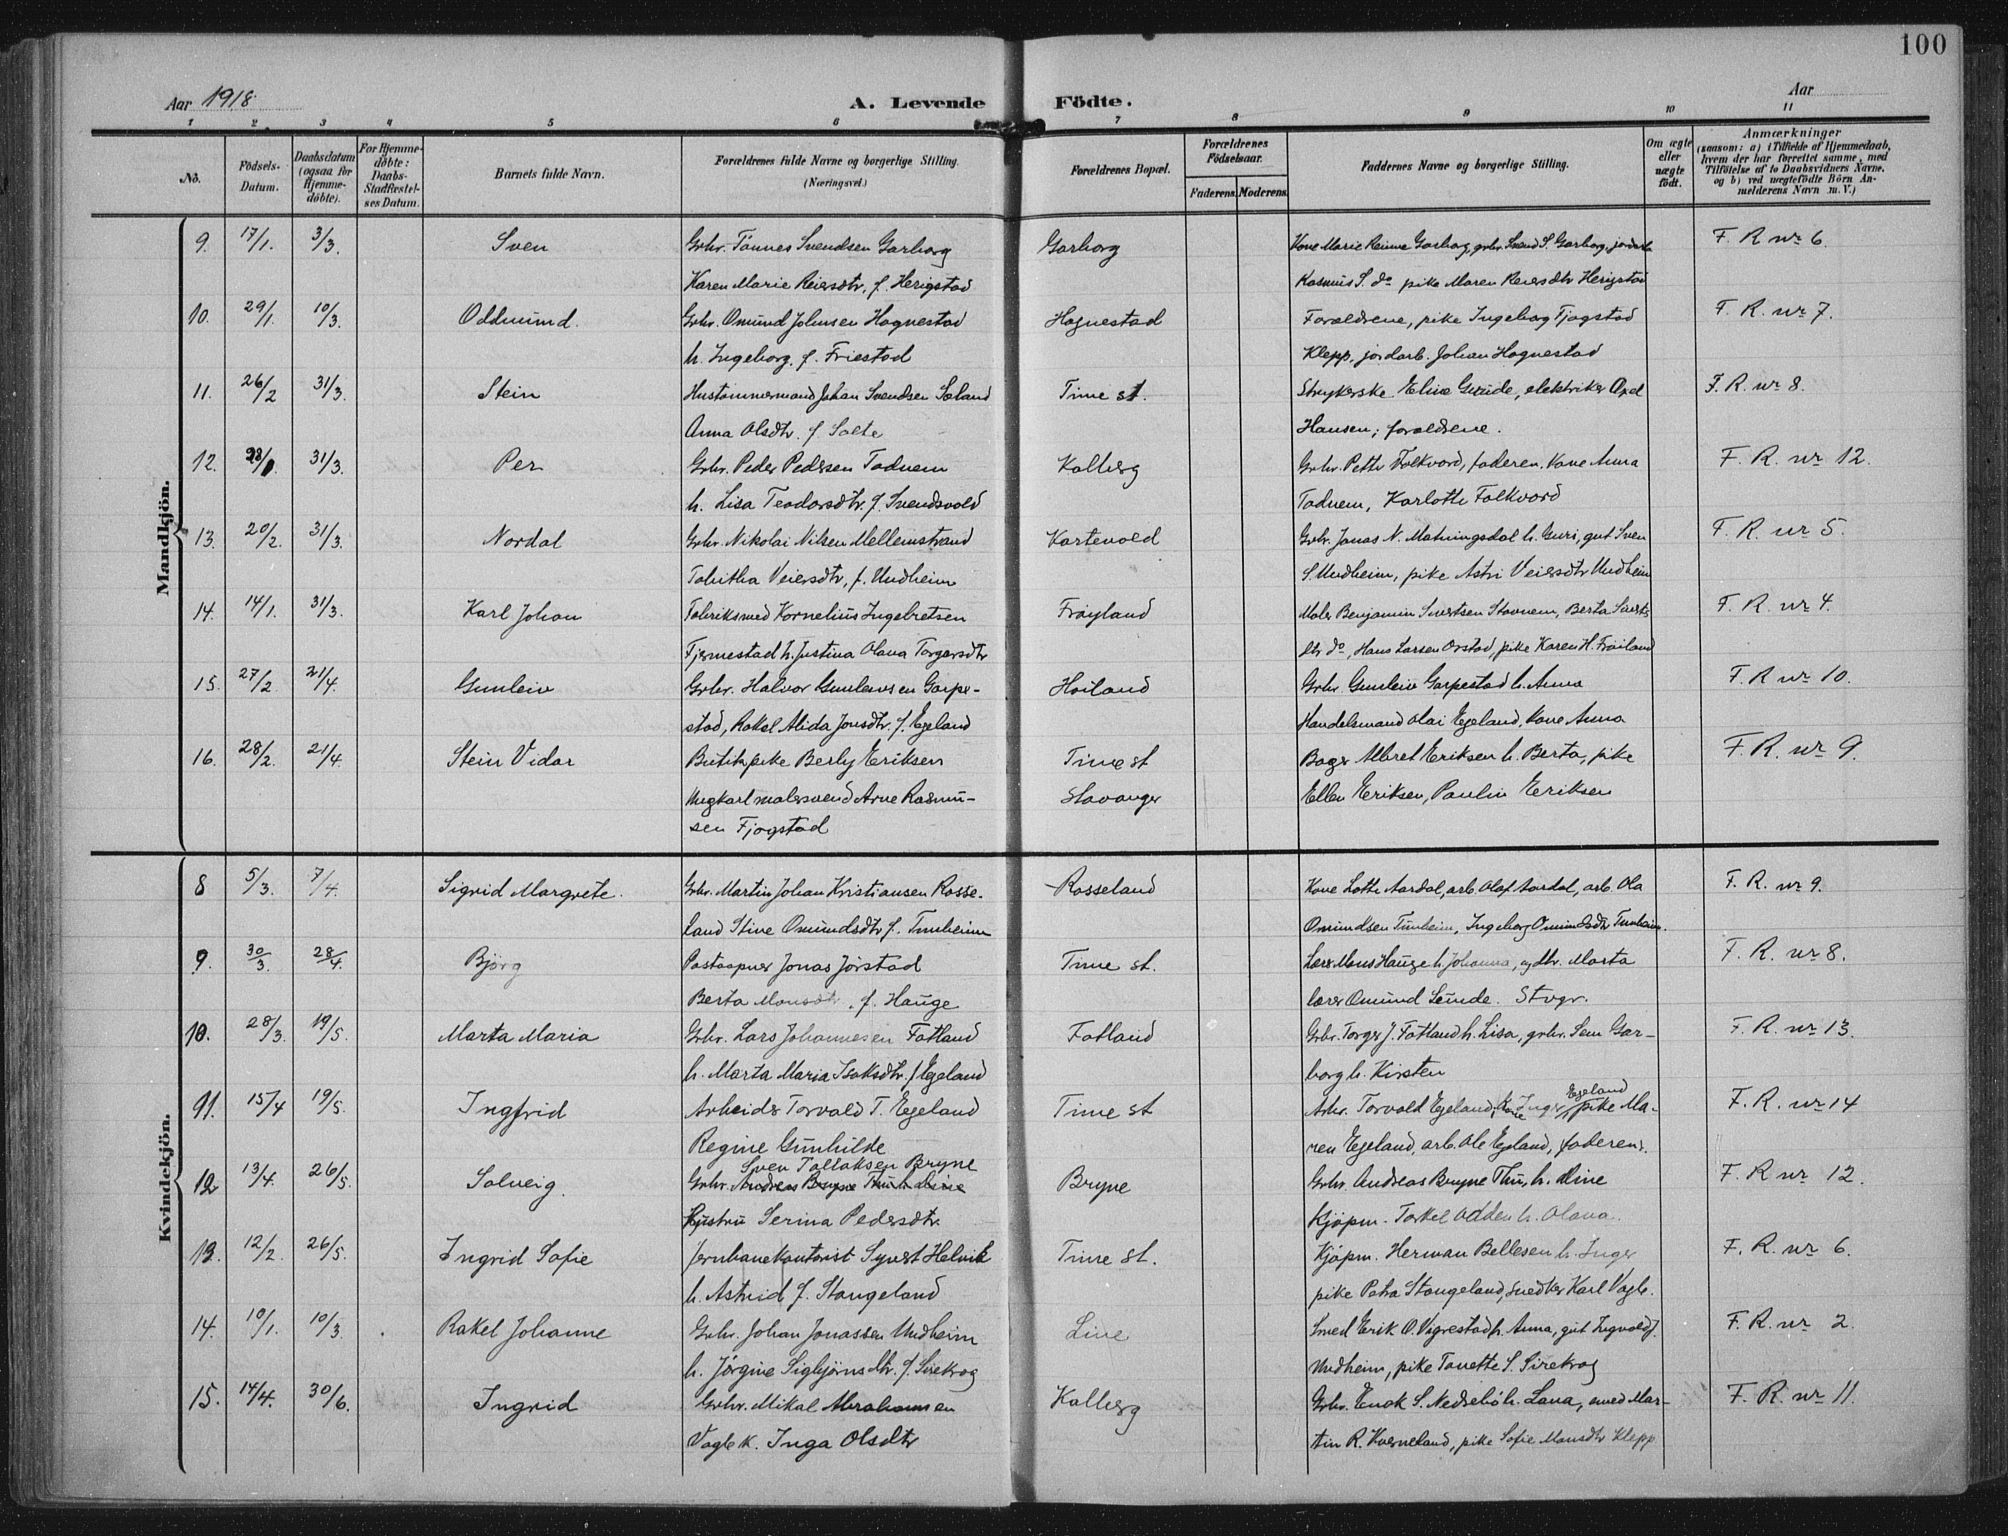 100
Aar 1918
A. Levende Födte.
Aar
1 2 3 4 5 6 7 8 9 10 11
No.
Födsels-Datum.
Daabsdatum (ogsaa for Hjemme-döbte).
For Hjemme-döbte: Daabs-Stadfæstel-ses Datum.
Barnets fulde Navn.
Forældrenes fulde Navne og borgerlige Stilling. (Næringsvei.)
Forældrenes Bopæl.
Forældrenes Födselsaar.
Faderens. Moderens.
Faddernes Navne og borgerlige Stilling.
Om ægte eller uægte födt.
Anmærkninger (saasom: a) i Tilfælde af Hjemmedaab, hvem der har forrettet samme, med Tilföielse af to Daabsvidners Navne, og b) ved uægtefödte Börn An-melderens Navn m. V.)
Mandkjön.
9. 17/1. 3/3. Sven Grbr. Tönnes Svendsen Garborg Garborg Kone Marie Garborg, grbr. Svend S. Garborg, jordarb. F. R. nr 6.
Karen Marie Reiersdtr. f. Herigstad Rasmus S. do pike Maren Reiersdtr Herigstad
10. 29/1. 10/3. Oddmund. Grbr. Omund Johnsen Hognestad Hognestad Forældrene, pike Ingeborg Tjogstad F. R. nr 7.
h. Ingeborg. f. Friestad Klepp, jordarb. Johan Hognestad
11. 26/2 31/3. Stein Hustømmermand Johan Svendsen Sæland Time st. Strykerske Elise Grude, elektriker Axel F. R. nr 8.
Anna Olsdtr. f. Salte Hansen; forældrene.
12. 31/3. Per Grbr. Peder Pedersen Tadnem Kalberg Grbr. Petter Folkvord, faderen, kone Anna F. R. nr 12.
h. Lisa Teodorsdtr. f. Svendsvold Tadnem, Karlotte Folkvord
13. 20/2. 31/3. Nordal Grbr. Nikolai Nilsen Mellemstrand Kartevold Grbr. Jonas N. Matningsdal h. Guri, gut Sven F. R. nr 5.
Tabitha Veiersdtr, f. Undheim S. Undheim, pike Astri Veiersdtr Undheim
14. 14/1. 31/3. Karl Johan Fabriksmed Kornelius Ingebretsen Frøyland Maler Benjamin Sivertsen Stavnem, Berta Siverts- F. R. nr 4.
Fjermestad h. Justina Olava Torgersdtr dtr do, Hans Larsen Orstad, pike Karen H. Frøiland
15. 27/2 21/4. Gunleiv Grbr. Halvor Gunlevsen Garpe- Høiland Grbr. Gunleiv Garpestad h. Anna F. R nr 10.
stad, Rakel Alida Jonsdtr. f. Egeland Handelsmand Olai Egeland, kone Anna
16. 28/2. 21/4. Stein Vidar Butikpike Berly Eriksen Time st Bager Albret Eriksen h. Berta, pike F. R. nr 9.
Ungkarl malersvend Arne Rasmu- Stavanger Ellen Eriksen, Paulin Eriksen
sen Fjogstad
Kvindekjön.
8 5/3. 7/4. Sigrid Margrete. Grbr. Martin Johan Kristiansen Rosse- Rosseland Kone Lotte Aardal, arb. Olaf Aardal, arb. Ola F. R. nr 9.
land Stine Omundsdtr f. Tunheim Omundsen Tunheim, Ingeborg Omundsdtr Tunheim.
9. 30/3. 28/4. Björg Postaapner Jonas Jørstad Time st. Lærer Mons Hauge h. Johanna, og dtr. Marta F. R. nr 8.
Berta Monsdtr. f. Hauge lærer Omund Lunde. Stvgr.
10. 28/3. 19/5. Marta Maria Grbr. Lars Johannesen Fotland Fotland Grbr. Torger J. Fotland h. Lisa, grbr. Sem Gar- F. R. nr 13.
h. Marta Maria Isaksdtr. f Egeland borg h. Kirsten
11. 15/4 19/5. Ingfrid Arbeider Torvald T. Egeland Time st Arbr. Torvald Egeland, kone Inger Egeland pike Ma- F. R. nr 14
Regine Gunhilde ren Egeland, arb. Ole Egeland, faderen.
Sven Tollaksen Bryne
12 13/4. 26/5. Solveig. Grbr. Andreas Bryne Thu h. Line Bryne Grbr. Andreas Bryne Thu, h. Line F. R nr 12.
Hustru Serina Pedersdtr. Kjøpm. Torkel Odden h. Olava.
13. 12/2. 26/5. Ingrid Sofie Jernbanekontorist Syvert Helvik Time st. Kjøpm. Herman Bellesen h. Inger F. R. nr 6.
h. Astrid f. Stangeland pike Petra Stangeland, snedker Karl Vagle.
14. 10/1. 10/3. Rakel Johanne Grbr. Johan Jonassen Undheim Line Smed Erik O. Vigrestad h. Anna, gut Ingvald J. F. R. nr 2.
h. Jørgine Sigbjørnsdtr. f. Sirekrog Undheim, pike Tonette S. Sirekrog
15. 14/4. 30/6. Ingrid Grbr. Mikal Abrahamsen Kalberg Grbr. Enok S. Nedrebø h. Lana, smed Mar- F. R. nr 11.
Vagle k. Inga Olsdtr tin R. Kverneland, pike Sofie Monsdtr Klepp